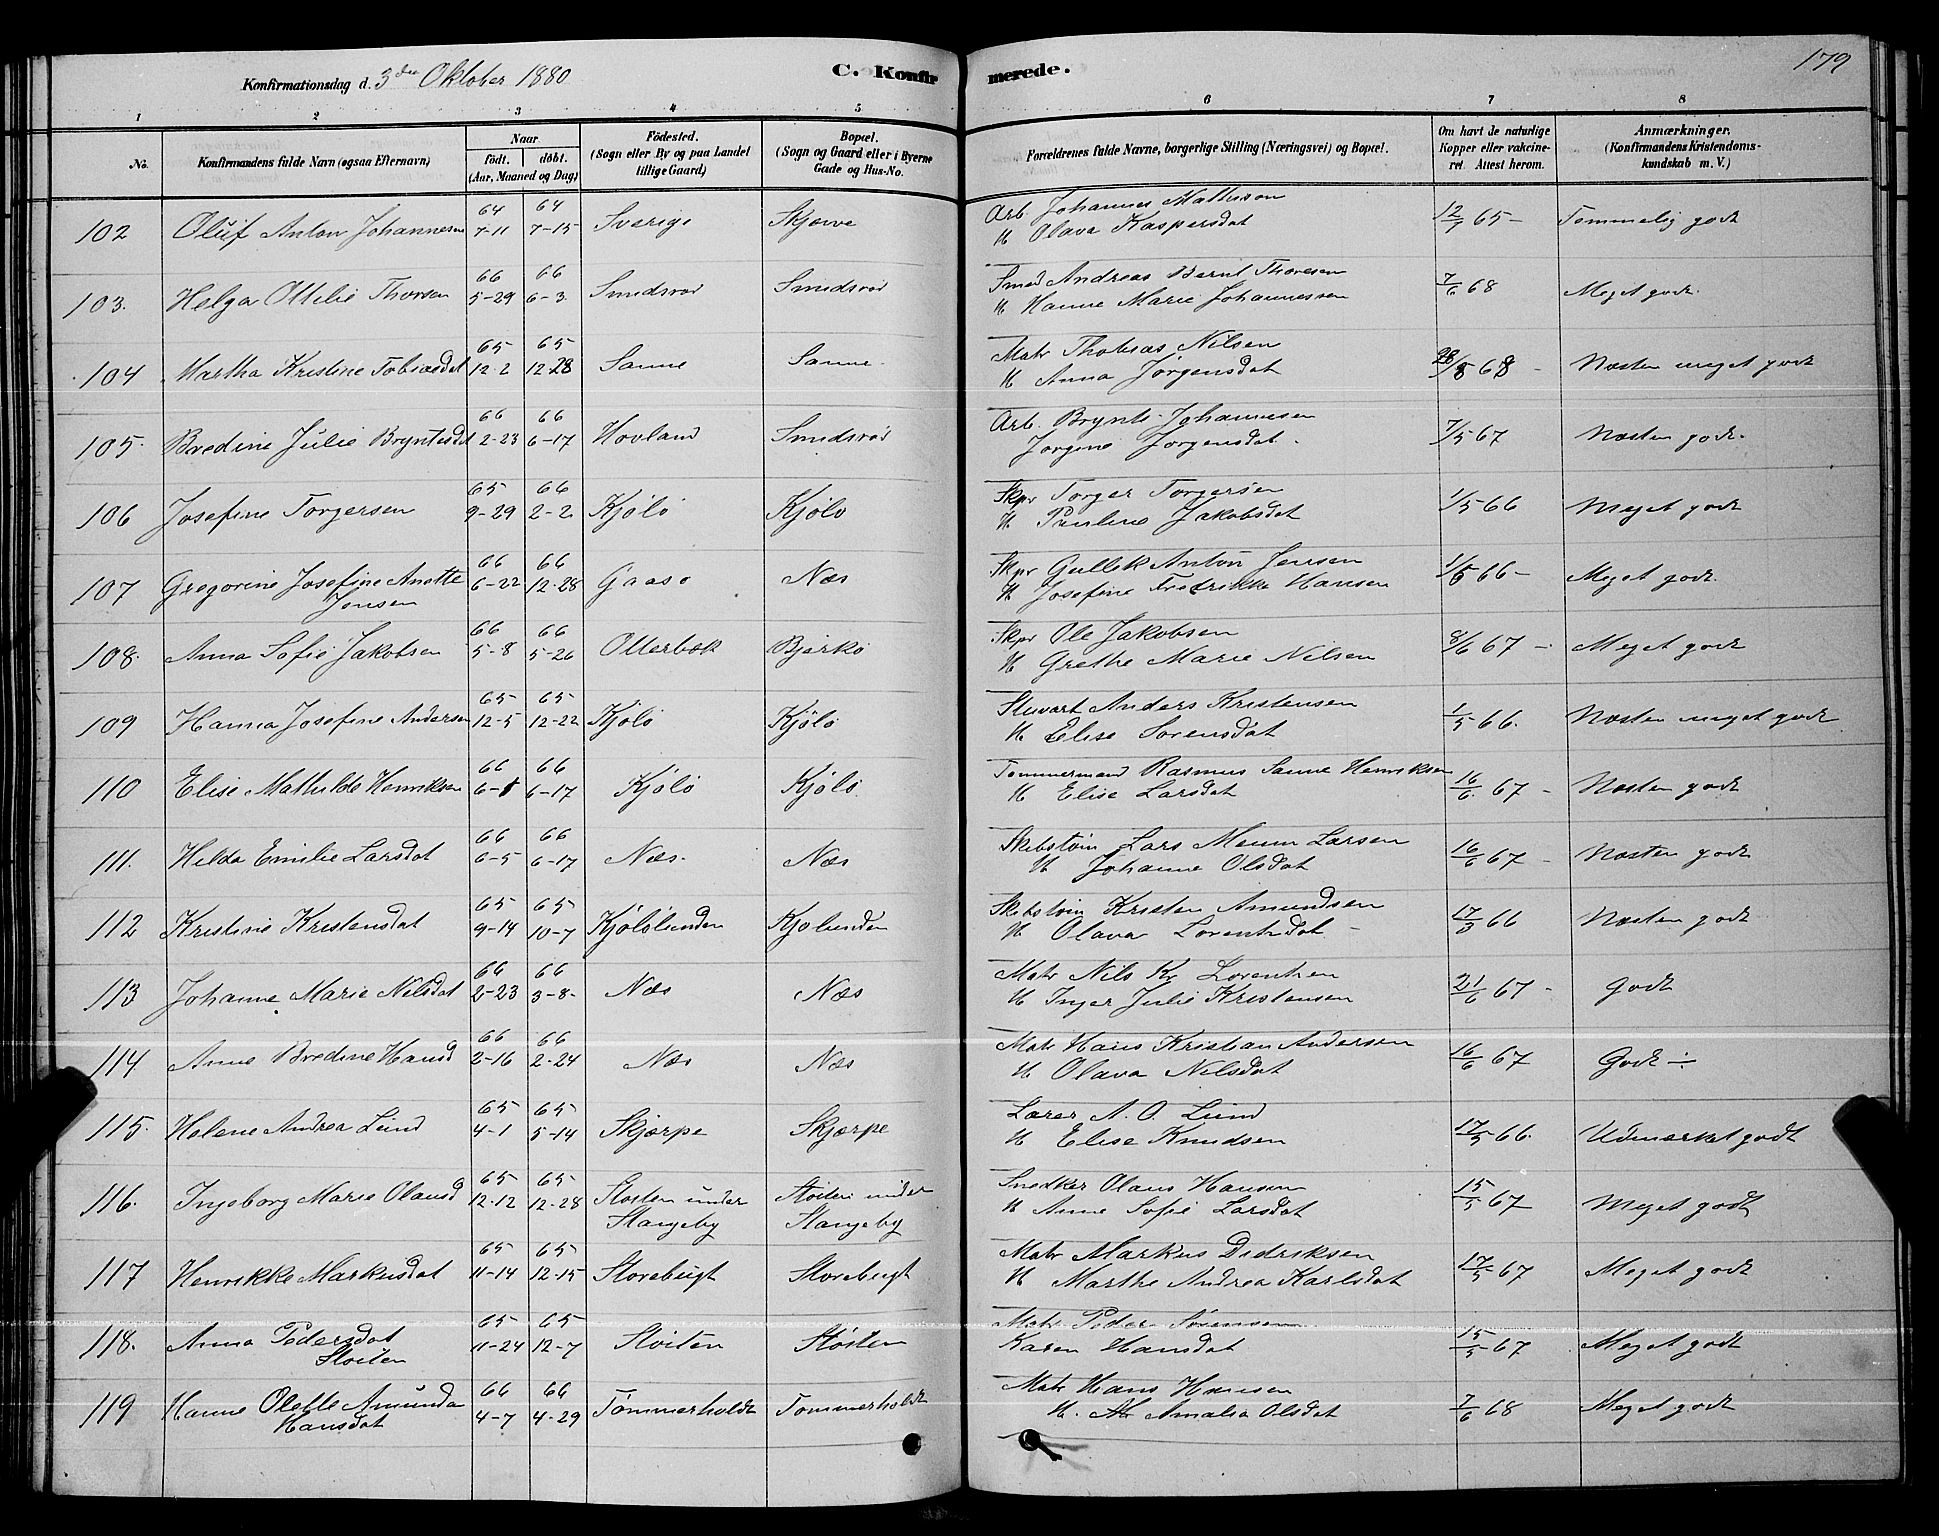 179
Konfirmationsdag d. 3die Oktober 1880 C. Konfirmerede.
1 2 3 4 5 6 7 8
No. Konfirmandens fulde Navn (ogsaa Efternavn) Naar født. døbt. (Aar, Maaned og Dag) Fødested. (Sogn eller By og paa Landet tillige Gaard) Bopæl. (Sogn og Gaard eller i Byerne Gade og Hus-No. Forældrenes fulde Navne, borgerlige Stilling (Næringsvei) og Bopæl. Om havt de naturlige Kopper eller vakcineret. Attest herom. Anmærkninger. (Konfirmandens Kristendomskundskab m. V.)
102 Oluf Anton Johannesen 64 7-11 64 7-15 Sverige Skjøeve Arb. Johannes Mathison
H Olava Kaspersdat 12/7 65 - Temmelig godt
103. Helga Ottilie Thorsen 66 5-29 66 6-3 Smidsrød Smidsrød Smed Andreas Bernt Thoresen
H Hanne Marie Johannessen 7/6 68 Meget godt.
104 Martha Kristine Tobiasdat 65 12-2 65 12-28 Sanne Sanne Matr Thobias Nilsen
H Anna Jørgensdat 68 - Næsten meget godt
105. Bredine Julie Bryntesdat 66 2-23 66 6-17 Hovland Smidsrød Arb. Brynte Johannesen
Jørgine Jørgensdat. 7/5 67 Næsten godt.
106 Josefine Torgersen 65 9-29 66 2-2 Kjølø Kjølø Skpr Torger Torgersen
H Pauline Jakobsdat 1/5 66 Meget godt
107 Gregorine Josefine Anette
Jensen 66 6-22 66 12-28 Gaasø Næs Skpr Gullik Anton Jensen
H Josefine Fredrikke Hansen 1/5 66 - Meget godt.
108. Anna Sofie Jakobsen 66 5-8 66 5-26 Otterbæk Bjerkø Skpr Ole Jakobsen
H Grethe Marie Nilsen 8/6 67 - Meget godt
109 Hanna Josefine Andersen 65 12-5 65 12-22 Kjølø Kjølø Stuvart Anders Kristensen
H Elise Sørensdat 1/5 66. Næsten meget godt
110 Elise Mathilde Henriksen 66 6-1 66 6-17 Kjølø Kjølø. Tømmermand Rasmus Sanne Henriksen
H Elise Larsdat 16/6 67 - Næsten godt
111. Hilda Emilie Larsdat 66 6-5 66 6-17 Næs. Næs Skibstøm Lars Larsen
H Johanne Olsdat 16/6 67 - Næsten godt
112 Kristine Kristensdat 65 9-14 65 10-7 Kjølølunden Kjølunden Skibstøm Kristen Amundsen
H Olava Lorentsdat - 17/3 66 Næsten godt
113 Johanne Marie Nilsdat 66 2-23 66 3-8- Næs Næs Matr Nils Kr Lorentzen
H Inger Julie Kristensen 21/6 67 - Godt
114 Anne Bredine Hansd 66 2-16 66 2-24 Næs Næs Matr Hans Kristian Andersen
H Olava Nilsdat 16/6 67 Godt ÷
115. Helene Andrea Lund 65 4-1 65 5-14 Skjærpe Skjærpe Lærer A. O. Lund
H Elise Knudsen 17/5 66. Udmærket godt
116. Ingeborg Marie Olausd 65 12-12 65 12-28 Sloiten under
Slangeby Sloiten under
Slangeby Snedker Olaus Hansen
H Anne Sofie Larsdat 15/5 67 Meget godt
117 Henrikke Markusdat 65 11-14 65 12-15 Storebugt Storebugt Matr Markus Didriksen
H Marthe Andrea Karlsdat 17/5 67 Meget godt
118. Anna Pedersdat
Sloiten 65 11-24 65 12-7 Sloiten Sloiten Matr Peder Sørensen
Karen Hansdat 15/5 67 Meget godt
119 Hanne Olette Amunda
Hansdat 66 4-7 66 4-29 Tømmerholdt Tømmerholdt Matr Hans Hansen
H. Amalia Olsdat 7/6 68 Meget godt